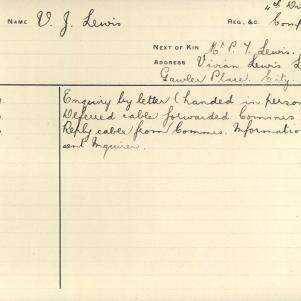 NAME V. J. Lewis
REG. &C.
NEXT OF KIN Mr P. T. Lewis.
ADDRESS Vivian Lewis L
Gawler Place. City.
Enquiry by letter (handed in perso
Deferred cable forwarded Commes
Reply cable from Commes. Informatio
sent Inquirer.